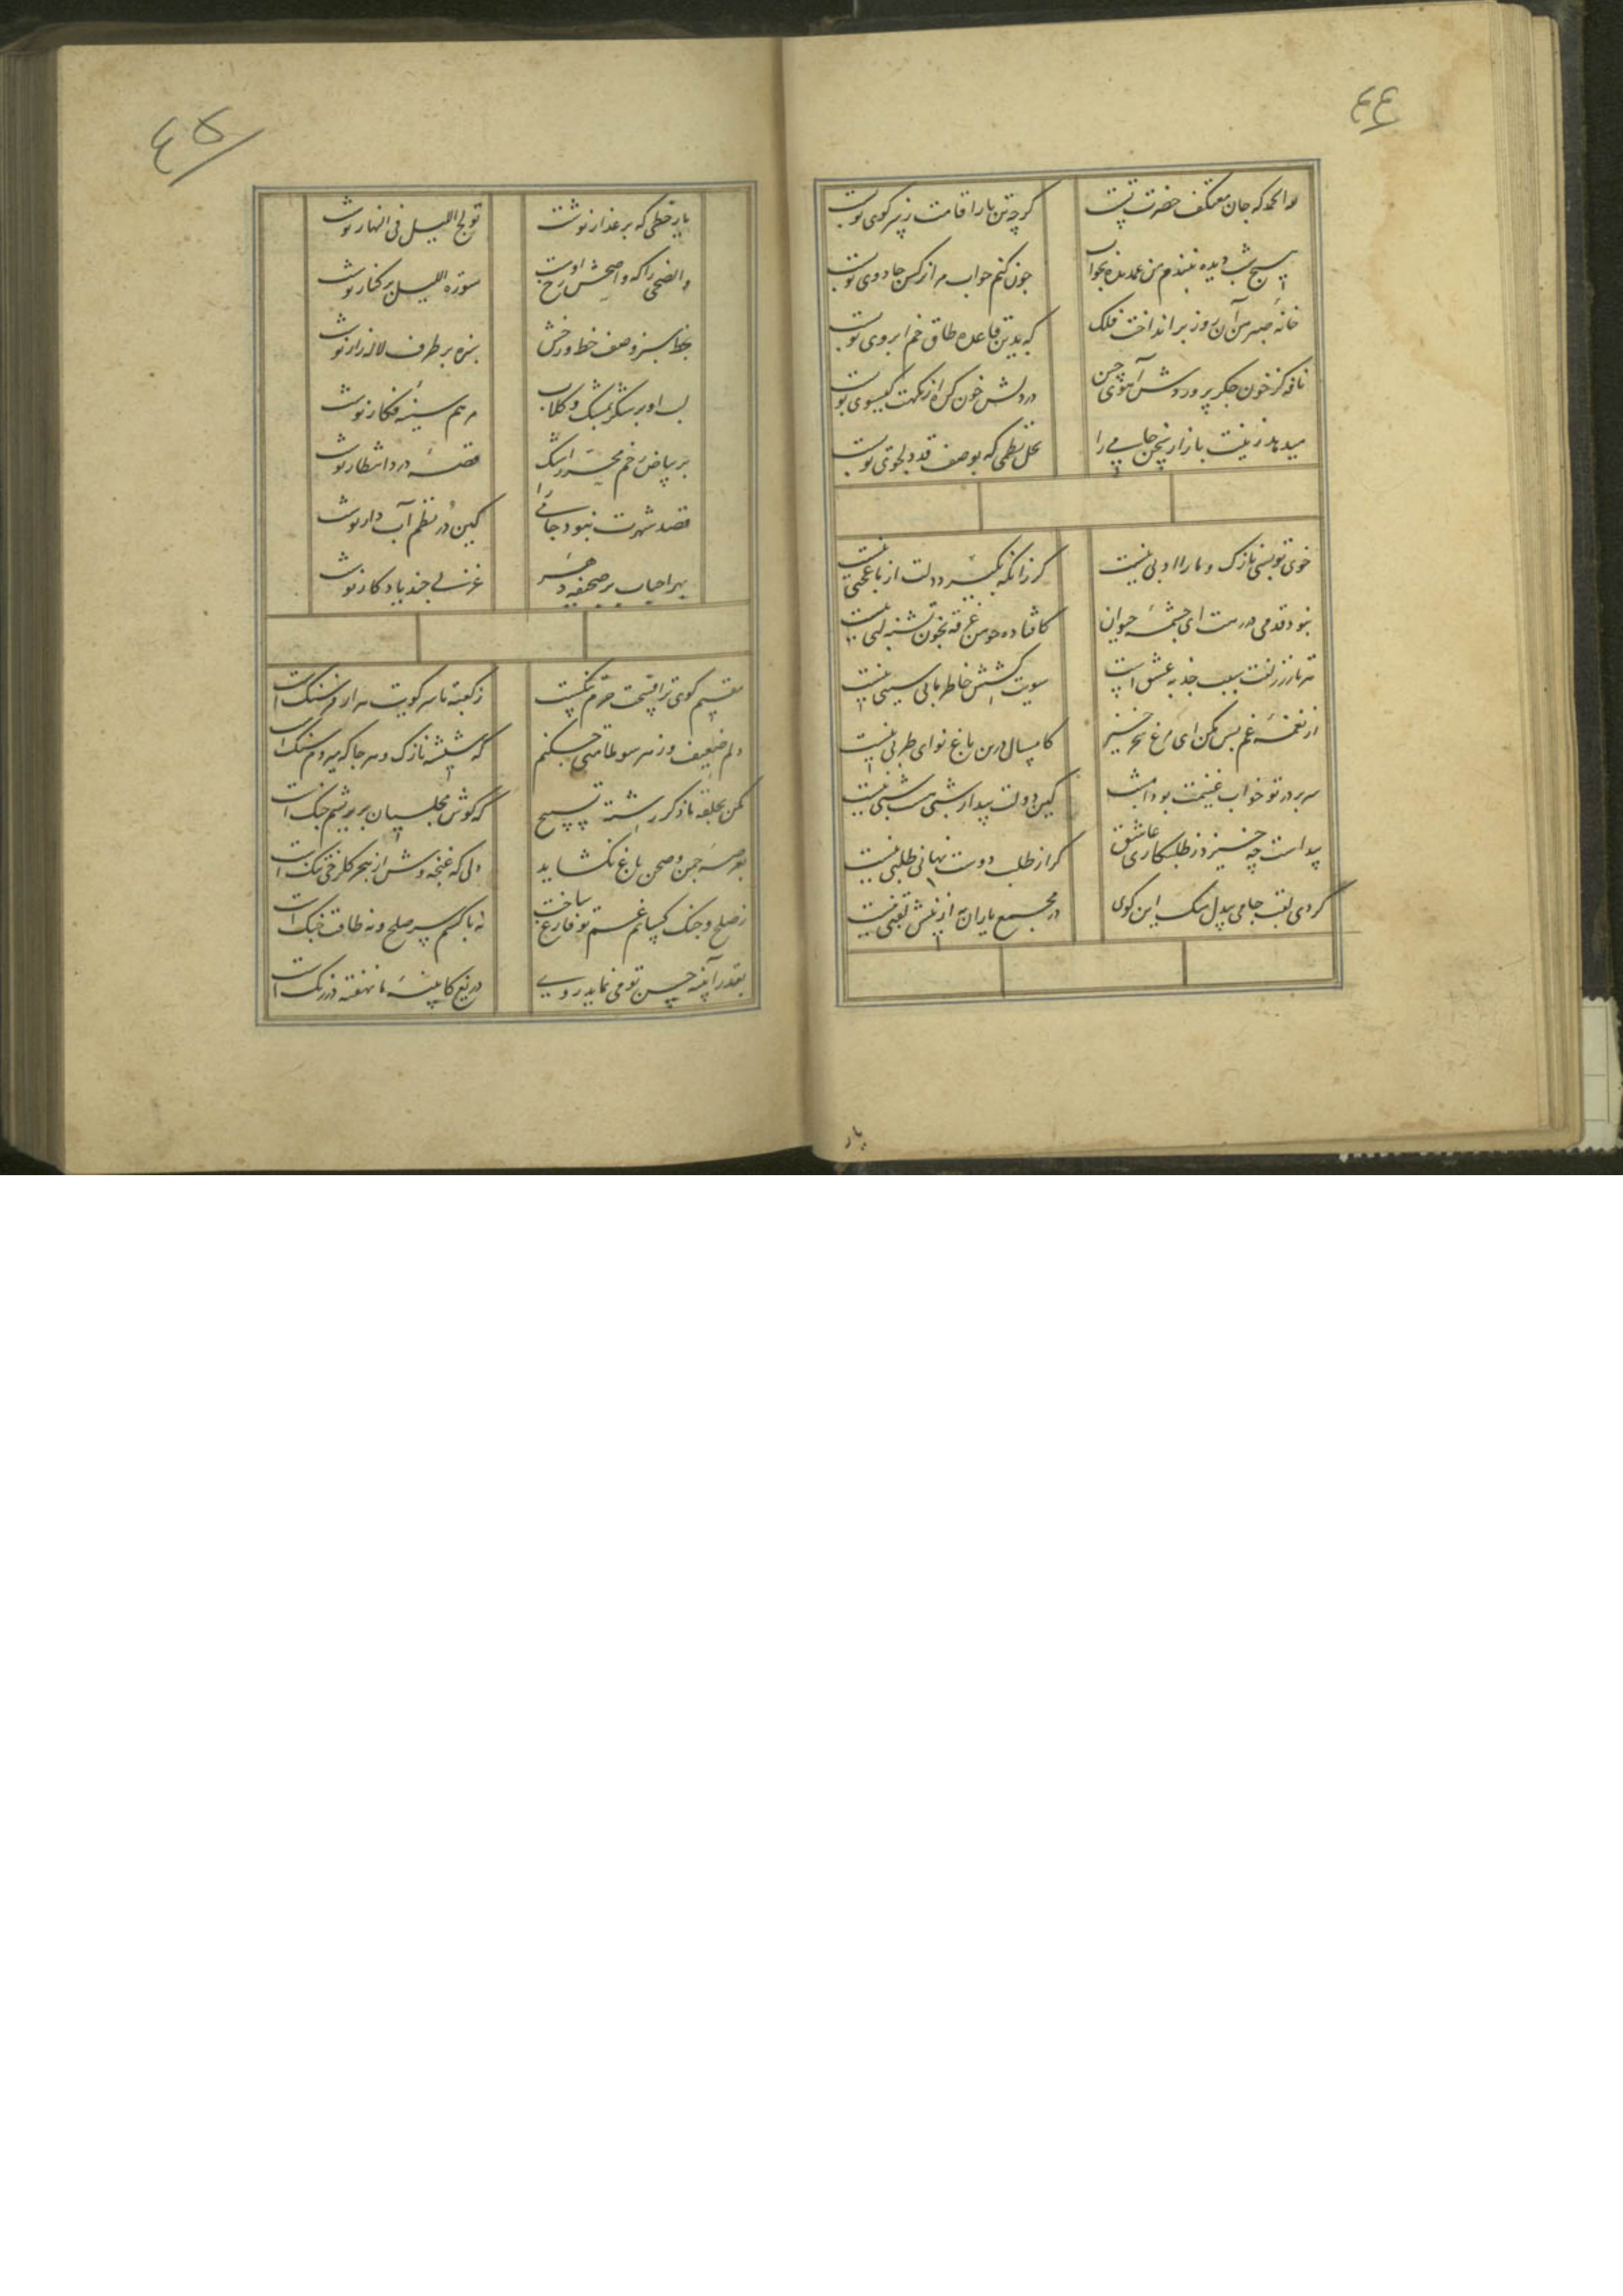 ٤٤
لله الحمد که جان معتکف حضرت تست
کرچه تن را اقامت ز سر کوی تو نیست
هیچ شب دیده نبندم من غمدیده بخواب
چون کنم خواب مرا نرکس جادوی تو بست
خانه صبر من آن روز برانداخت فلک
که بدین قاعده طاق خم ابروی تو بست
نافه کز خون جکر پروردش آهوی چین
در دلش خون کره از نکهت کیسوی تو بست
میدهد زینت بازار سخن جامی را
نخل نظمی که بوصف قد دلجوی تو بست
خوی تو بسی نازک و ما را ادبی نیست
کر زانکه نکیرد دلت از ما عجبی نیست
نبود قدمی در رهت ای چشمه حیوان
کافتاده چو من غرقه بخون تشنه لبی نیست
هر تار ز زلفت سبب جذبه عشق است
سویت کشش خاطر ما بی سببی نیست
از نغمه غم بس مکن ای مرغ سحر خیز
کامسال درین باغ نوای طربی نیست
سر بر در تو خواب غنیمت بود امشب
کین دولت بیدار شبی هست شبی نیست
پیداست چه خیزد ز طلبکاری عاشق
کر از طلب دوست نهانی طلبی نیست
کردی لقب جامی بیدل سک این کوی
در مجمع یاران به ازینش لقبی نیست
یار
٤٥
یار خطی که بر عذار نوشت
تولج اللیل فی النهار نوشت
والضحی را که واضحش رخ اوست
سوره اللیل بر کنار نوشت
بخط سبز وصف خط و رخش
سبزه بر طرف لاله زار نوشت
لب او بر شکر بمشک و کلاب
مرهم سینه فکار نوشت
بر بیاض رخم محرر اشک
قصه درد انتظار نوشت
قصد شهرت نبود جامی را
کین در نظم آب دار نوشت
بهر احباب بر صحیفه دهر
غزلی چند یادکار نوشت
مقیم کوی ترا فسحت حرم تنکست
ز کعبه تا سر کویت هزار فرسنک است
دلم ضعیف و ز هر سو ملامتی چکنم
که شیشه نازک و هر جا که میروم سنک است
مکن بحلقه ما ذکر رشته تسبیح
که کوش مجلسیان بر بریشم چنک است
بعرصه چمن و صحن باغ نکشاید
دلی که غنچه وش از هجر کلرخی تنک است
ز صلح و جنک کسانم غم تو فارغ ساخت
نه با کسم سر صلح و نه طاقت جنک است
بقدر آینه حسن تو می نماید روی
دریغ کاینه ما نهفته در زنک است